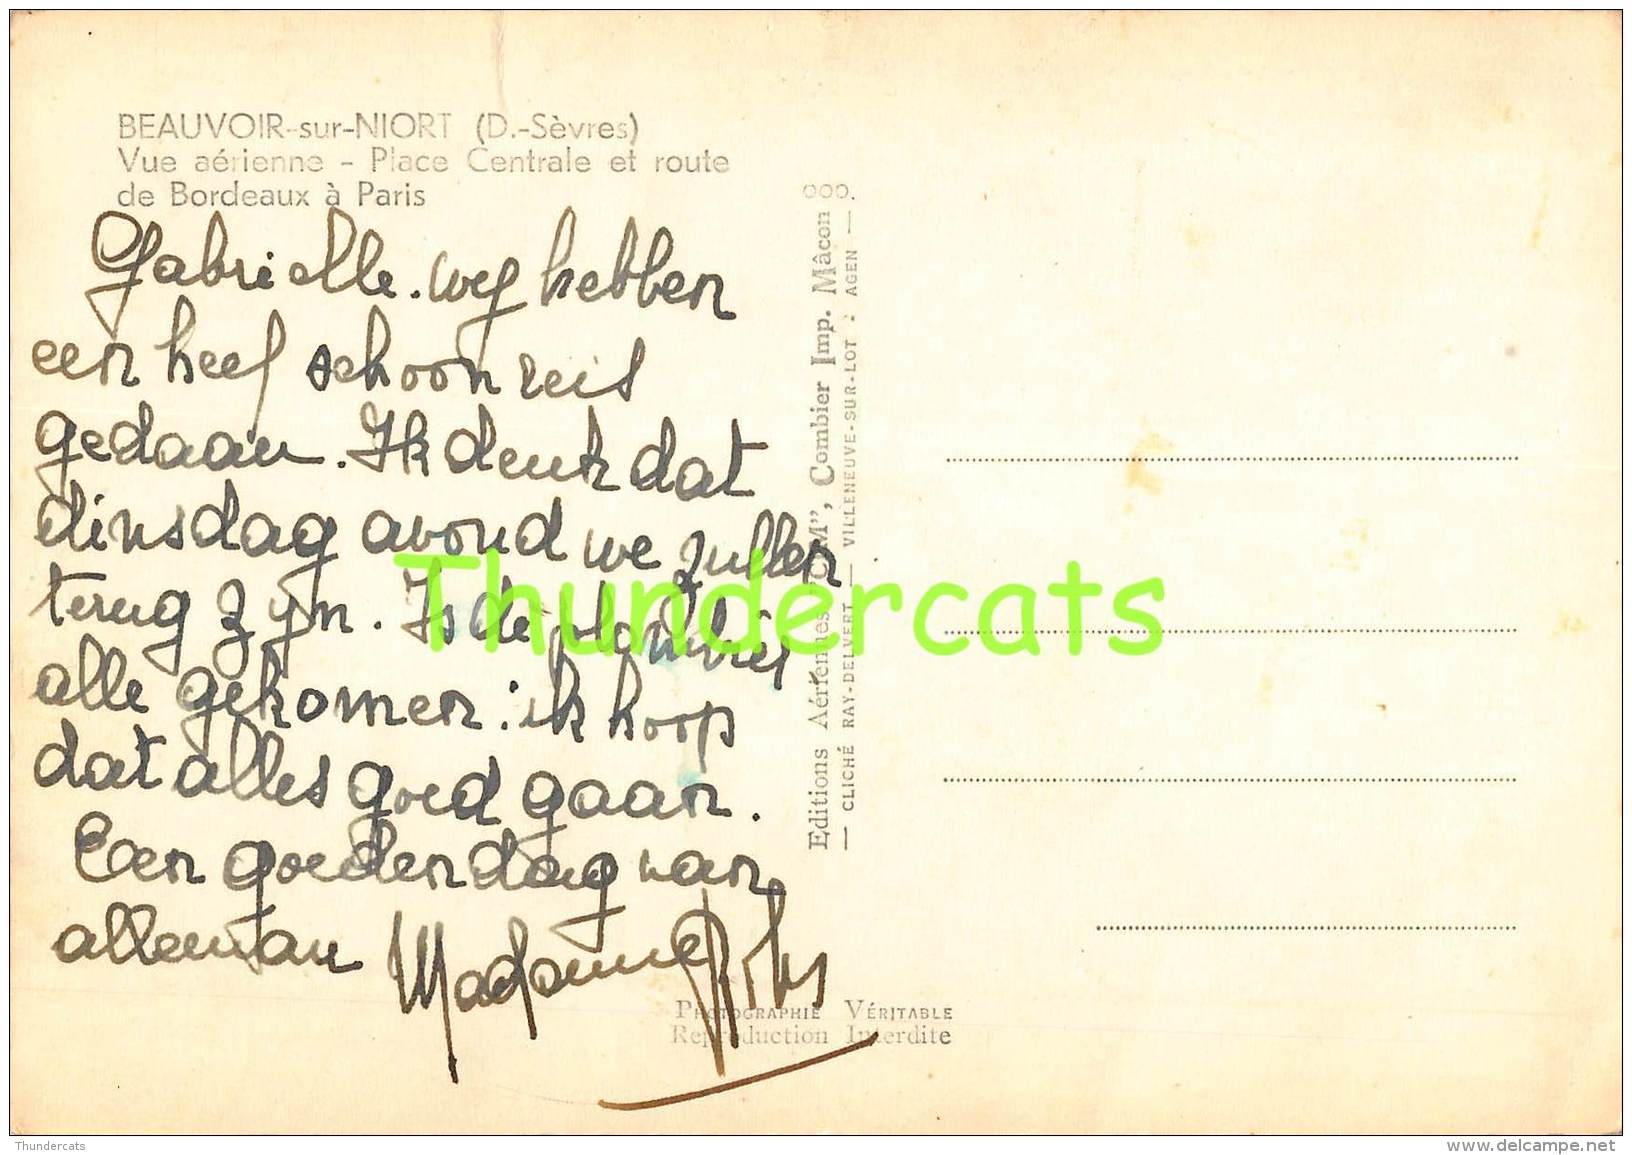 BEAUVOIR-sur-NIORT (D.-Sèvres)
Vue aérienne - Place Centrale et route
de Bordeaux à Paris
Gabrielle. wef hebben
een heef schoon reis
gedaan. Ik denk dat
dinsdag avond we zullen
terug zyn. Is de plombier
alle gekomen : ik hoop
dat alles goed gaan.
Een goeden dag van
alleman Madame
Editions Aériennes "COMBIER Imp. Mâcon
— CLICHÉ RAY-DELVERT — VILLENEUVE-SUR-LOT : AGEN —
PHOTOGRAPHIE VÉRITABLE
Reproduction Interdite
Thundercats
Thundercats
www.delcampe.net